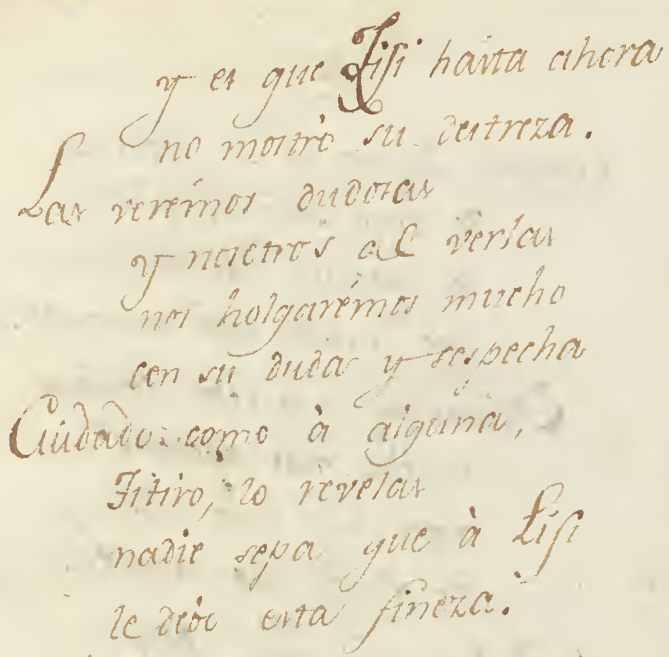 y es que Lisi hasta ahora
no mostrò su destreza.
Las verémos dudosas
y nosotros al verlas
nos holgarémos mucho
con su duda y sospecha
Cuidado como à alguna,
Titiro, lo revelas
nadie sepa que à Lisi
le debo esta fineza.